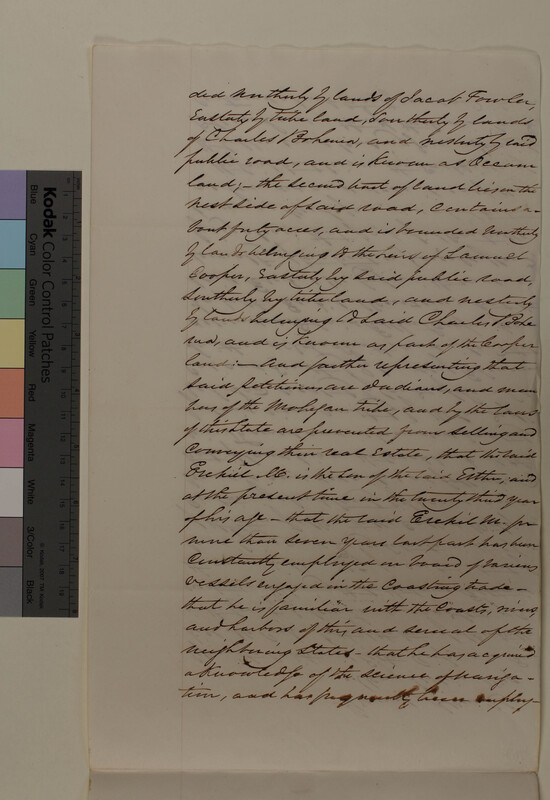 ded Northerly by lands of Jacob Fowler,
Easterly by tribe land, Southerly by lands
of Charles Bohema, and Westerly by said
public road, and is known as Occom
land; - the second tract of land lies on the
West side of said road, Contains a-
bout forty acres, and is bounded Northerly
by lands belonging to the heirs of Samuel
Cooper, Easterly by said public road,
Southerly by tribe land, and Westerly
by lands belonging to said Charles Bohe
ma, and is known as part of the Cooper
land: - And further representing that
said petitioners are Indians, and mem
bers of the Mohegan tribe, and by the laws
of this State are prevented from selling and
Conveying their real Estate, that the said
Ezekiel M. is the son of the said Esther, and
at the present time in the twenty third year
of his age - that the said Ezekiel M. for
more than seven years last past has been
Constantly employed on board of various
vessels engaged in the Coasting trade -
that he is familiar with the Coasts, rivers
and harbors of this and several of the
neighboring States - that he has acquired
a knowledge of the science of naviga-
tion, and has frequently been employ-
Kodak Color Control Patches
Blue
Cyan
Green
Yellow
Red
Magenta
White
3/Color
Black